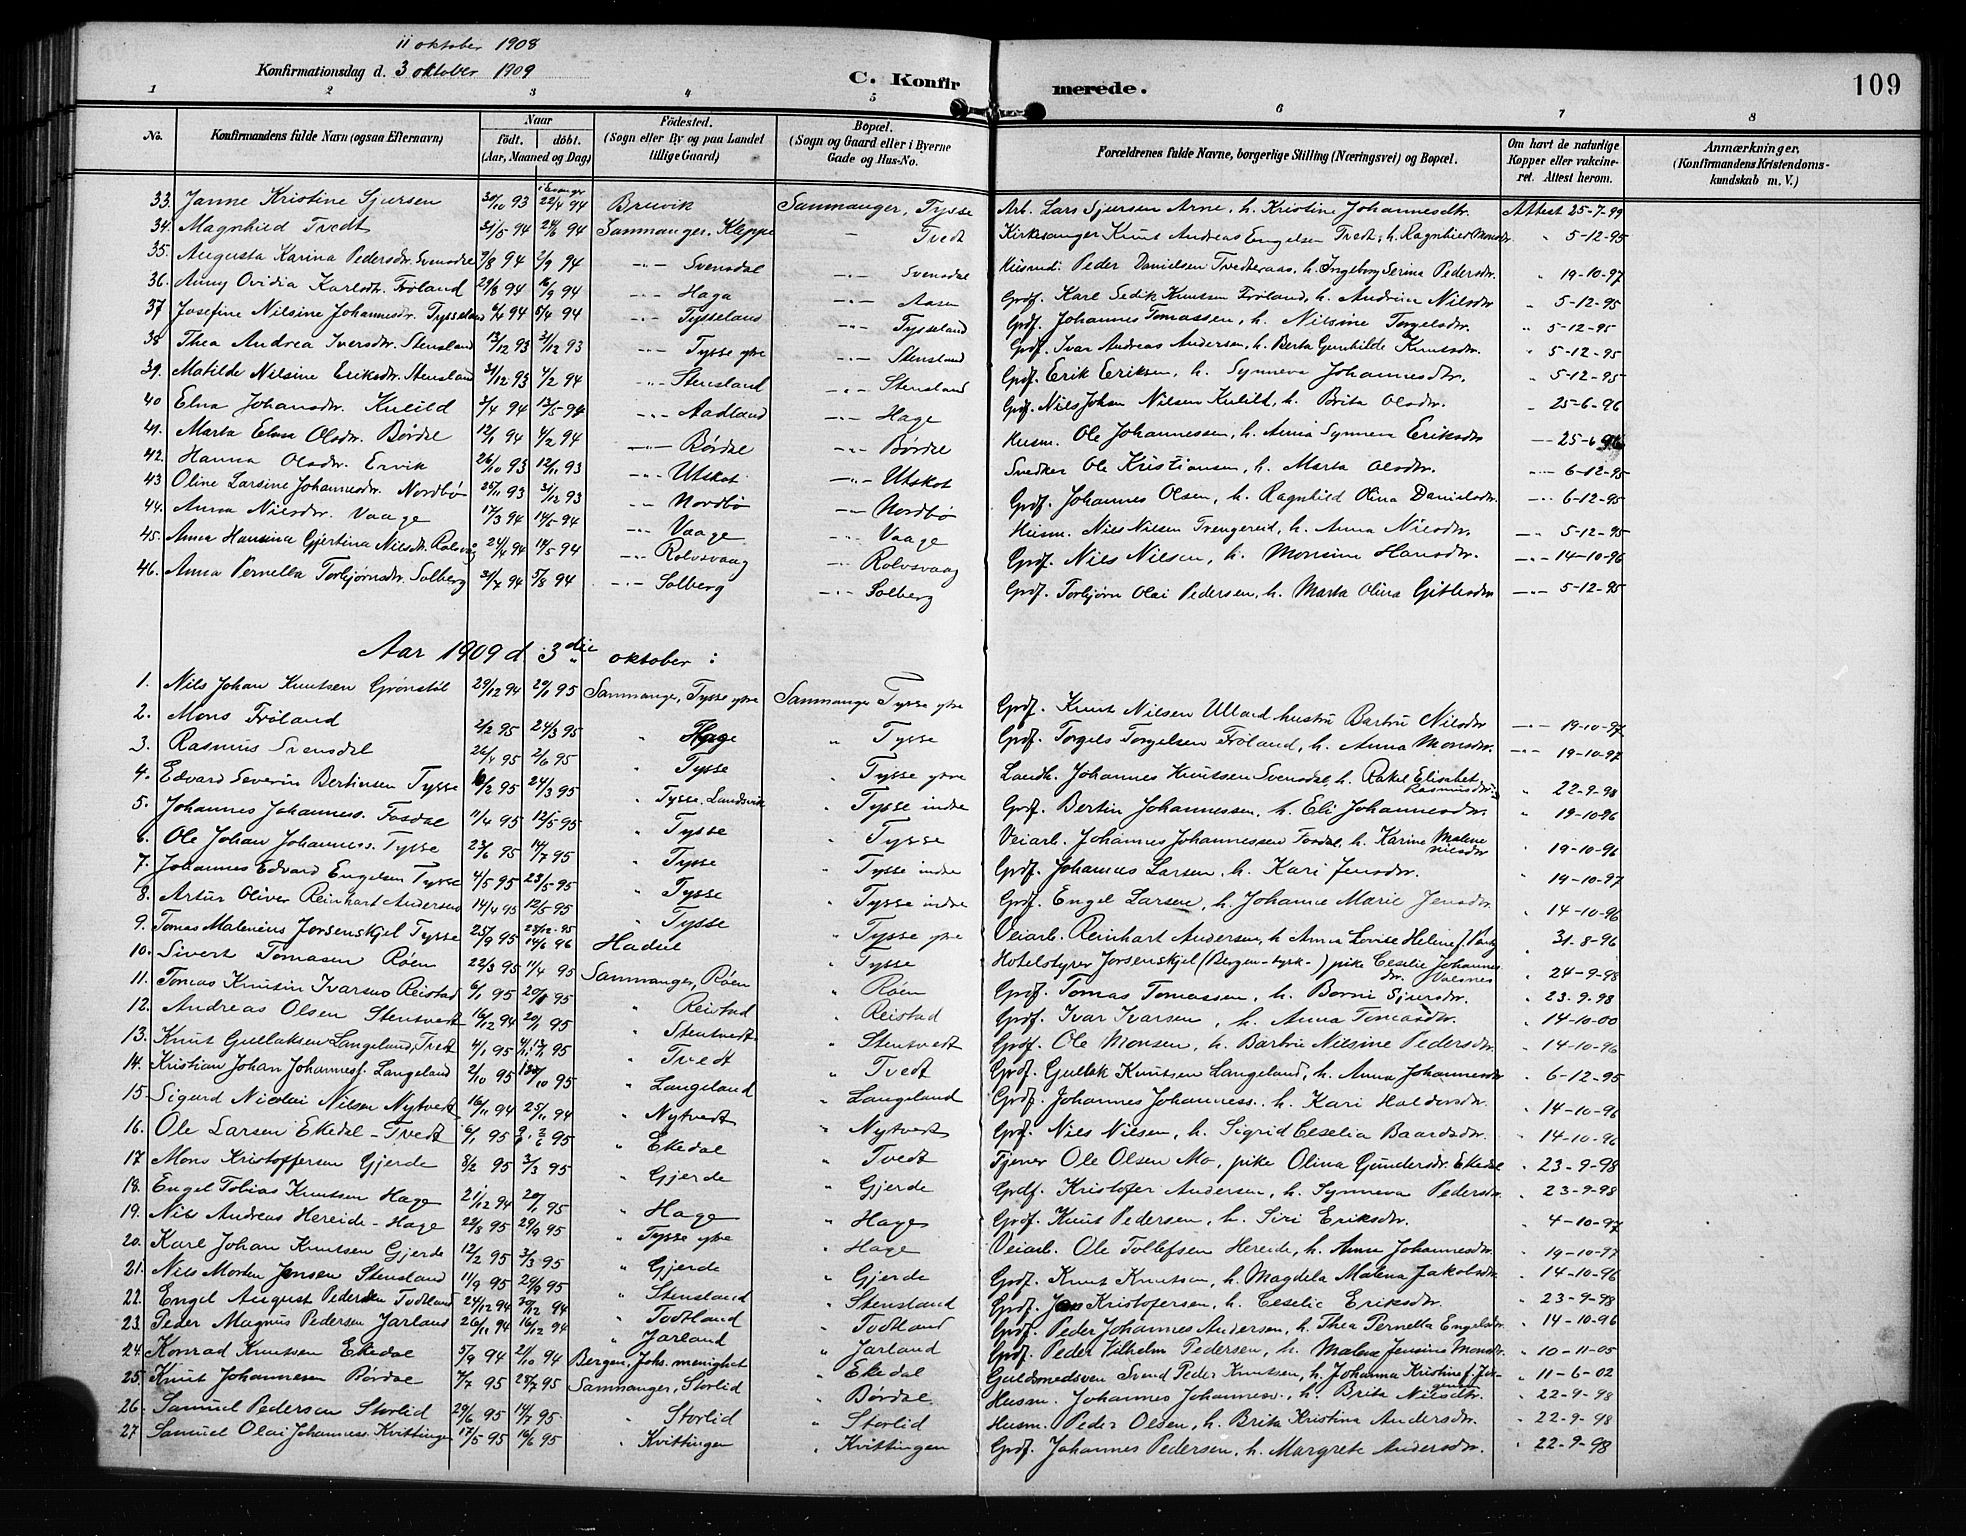 11 oktober 1908
Konfirmationsdag d. 3 oktober 1909
C. Konfirmerede.
109
1 2 3 4 5 6 7 8
No. Konfirmandens fulde Navn (ogsaa Efternavn) Naar født. døbt. (Aar, Maaned og Dag) Fødested. (Sogn eller By og paa Landet tillige Gaard) Bopæl. (Sogn og Gaard eller i Byerne Gade og Hus-No. Forældrenes fulde Navne, borgerlige Stilling (Næringsvei) og Bopæl. Om havt de naturlige Kopper eller vakcineret. Attest herom. Anmærkninger, (Konfirmandens Kristendomskundskab m. V.)
33. Janne Kristine Sjursen 30/10 93 i Evanger 22/4 94 Bruvik Sammanger, Tysse Arb. Lars Sjursen Arne, h. Kristine Johannesdtr. Attest 25-7-99
34. Magnhild Tvedt 31/5 94 24/6 94 Sammanger, Kleppe - Tvedt Kirkesanger Knut Andreas Engelsen Tvedt, h. Ragnhild Monsdr " 5-12-95
35. Augusta Karina Pedersdtr. Svensdal 7/8 94 2/9 94 -"- Svensdal -"- Svensdal Husmd. Peder Danielsen Tvedteraas, h. Ingeborg Serina Pedersdtr. " 19-10-97
36. Anny Ovidia Karlsdtr. Frøland 29/8 94 16/9 94 -"- Haga -"- Aasen Grdf. Karl Sedik Knutsen Frøland, h. Andrina Nilsdtr " 5-12-95
37. Josefine Nilsine Johannesdr. Tysseland 94 5/4 94 -"- Tysseland -"- Tysseland Grdf. Johannes Tomassen, h. Nilsine Torgelsdtr. " 5-12-95
38 Thea Andrea Iversdtr. Stensland 13/12 93 31/12 93 -"- Tysse ytre -"- Stensland Grdf. Ivar Andreas Andersen, h. Berta Gunhilde Knutsdtr. " 5-12-95
39. Matilde Nilsine Eriksdtr. Stensland 31/12 93 4/2 94 -"- Stensland -"- Stensland Grdf. Erik Eriksen, h. Synneva Johannesdtr. " 5-12-95
40 Elna Johansdtr. Kulild 3/4 94 13/5 94 -"- Aadland -"- Hage Grdf. Nils Johan Nilsen Kulild, h. Brita Olsdtr. " 25-6-96
41. Marta Elna Olsdtr. Børdal 12/1 94 4/2 94 -"- Børdal -"- Børdal Husm. Ole Johannessen, h. Anna Synneva Eriksdtr -"- 25-6 96
42. Hanna Olsdtr. Ervik 26/10 93 12/11 93 -"- Utskot -"- Utskot Snedker Ole Kristiansen, h. Marta Olsdtr. -"- 6-12-95
43 Oline Larsine Johannesdtr. Nordbø 25/11 93 31/12 93 -"- Nordbø -"- Nordbø Grdf. Johannes Olsen, h. Ragnhild Olina Danielsdtr. -"- 6-12-95
44. Anna Nilsdtr. Vaage 17/3 94 14/5 94 -"- Vaage -"- Vaage Husm. Nils Nilsen Trengereid, h. Anna Nilsdtr. -"- 5-12-95
45. Anna Hansina Gjertina Nilsdtr. Rolsvaag 24/4 94 14/5 94 -"- Rolvsvaag -"- Rolvsvaag Grdf. Nils Nilsen, h. Monsine Hansdtr. -"- 14-10-96
46. Anna Pernella Torbjørnsdtr. Solberg 31/7 94 5/8 94 -"- Solberg -"- Solberg Grdf. Torbjørn Olai Pedersen, h. Marta Olina Gitlesdtr -"- 5-12-95
Aar 1909 d. 3die oktober:
1. Nils Johan Knutsen Grønstøl 29/12 94 29/1 95 Sammanger, Tysse ytre Sammanger Tysse ytre Grdf. Knut Nilsen Ullard hustru Barbru Nilsdtr -"- 19-10-97
2. Mons Frøland 2/2 95 24/3 95 " Hage " Tysse Grdf. Torgels Torgelsen Frøland, h. Anna Monsdtr. -"- 19-10-97
3. Rasmus Svensdal 26/4 95 2/6 95 " Tysse " Tysse ytre Landh. Johannes Knutsen Svensdal, h. Rakel Elisabet Rasmusdtr. " 22-9-98
4. Edvard Severin Bertinsen Tysse 10/2 95 24/3 95 " Tysse, Landsvik " Tysse indre Grdf. Bertin Johannessen, h. Eli Johannesdtr. " 19-10-96
5. Johannes Johanness. Fosdal 11/4 95 12/5 95 " Tysse " Tysse Veiarb. Johannes Johannessen Fosdal, h. Karine Malene Nilsdtr " 19-10-96
6. Ole Johan Johanness. Tysse 23/6 95 14/7 95 " Tysse " Tysse indre Grdf. Johannes Larsen, h. Kari Jensdtr. " 14-10-97
7. Johannes Edvard Engelsen Tysse 4/5 95 23/5 95 " Tysse " Tysse indre Grdf. Engel Larsen, h. Johanne Marie Jensdtr. " 14-10-96
8. Artur Oliver Reinhart Andersen 14/4 95 12/5 95 " Tysse " Tysse ytre Veiarb. Reinhart Andersen, h. Anna Lovise Helene f. " 31-8-96
9. Tomas Malenius Jorsenskjel Tysse 25/9 95 23/12-95 14/6 96 Hadsel " Tysse Hotelstyrer Jorsenskjel (Bergen-tysk-) pike Ceselie Johannesdtr. " 24-9-98
10. Sivert Tomasen Røen 22/3 95 11/4 95 Sammanger, Røen " Røen Grdf. Tomas Tomassen, h. Borni Sjursdtr. " 23-9-98
11. Tomas Knutsin Ivarsen Reistad 6/1 95 20/1 95 " Reistad " Reistad Grdf. Ivar Ivarsen, h. Anna Tomasdtr. " 14-10-00
12. Andreas Olsen Stentvedt 16/12 94 20/1 95 " Stentvedt " Stentvedt Grdf. Ole Monsen, h. Barbru Nilsine Pedersdtr " 14-10-96
13. Knut Gullaksen Langeland, Tvedt 4/1 95 95 " Tvedt " Tvedt Grdf. Gullak Knutsen Langeland, h. Anna Johannesdtr " 6-12-95
14. Kristian Johan Johannesf. Langeland 2/10 95 /10 95 " Langeland " Langeland Grdf. Johannes Johanness. h. Kari Haldorsdtr. " 14-10-96
15 Sigurd Nicolai Nilsen Nytvedt 16/11 94 25/11 94 " Nytvedt " Nytvedt Grdf. Nils Nilsen, h. Sigrid Ceselia Baardsdtr. " 14-10-96
16. Ole Larsen Ekedal-Tvedt 6/1 95 95 " Ekedal " Tvedt Tjener Ole Olsen Mo, pike Olina Gundersdtr. Ekedal " 23-9-98
17 Mons Kristoffersen Gjerde 8/2 95 3/3 95 " Gjerde " Gjerde Grdf. Kristofer Andersen, h. Synneva Pedersdtr " 23-9-98
18. Engel Tobias Knutsen Hage 21/12 94 20/1 95 " Hage " Hage Grdf. Knut Pedersen, h. Siri Eriksdtr. " 4-10-97
19. Nils Andreas Hereide-Hage 22/8 95 29/9 95 " Tysse ytre " Hage Veiarb. Ole Tollefsen Hereide, h. Anna Johannesdtr. " 19-10-97
20. Karl Johan Knutsen Gjerde 12/2 95 3/3 95 " Gjerde " Gjerde Grdf. Knut Knutsen, h. Magdela Malena Jakobsdtr " 14-10-96
21. Nils Morten Jensen Stensland 11/9 95 29/9 95 " Stensland " Stensland Grdf. Jens Kristofersen, h. Ceselie Eriksdtr. " 23-9-98
22. Engel August Pedersen Todtland 24/12 94 30/12 94 " Todtland " Todtland Grdf. Peder Johannes Andersen, h. Thea Pernella Engelsdtr. " 14-10-96
23. Peder Magnus Pedersen Jarland 26/11 94 16/12 94 " Jarland " Jarland Grdf. Peder Vilhelm Pedersen, h. Malena Jensine Monsdtr " 10-11-05
24. Konrad Knutsen Ekedal 5/9 94 21/10 94 Bergen, Johs. menighet " Ekedal Guldsmedsven Svend Peder Knutsen, h. Johanna Kristine f. " 11-6-02
25. Knut Johannesen Børdal 7/7 95 25/7 95 Sammanger, Storlid " Børdal Husm. Johannes Johanness. h. Brite Nilsdtr. " 22-9-98
26. Samuel Pedersen Storlid 29/6 95 14/7 95 " Storlid " Storlid Husm. Peder Olsen, h. Brita Kristina Andersdtr. " 22-9-98
27 Samuel Olai Johanness. Kvittingen 17/5 95 16/6 95 " Kvittingen " Kvittingen Grdf. Johannes Pedersen, h. Margrete Andersdtr. " 22-9-98